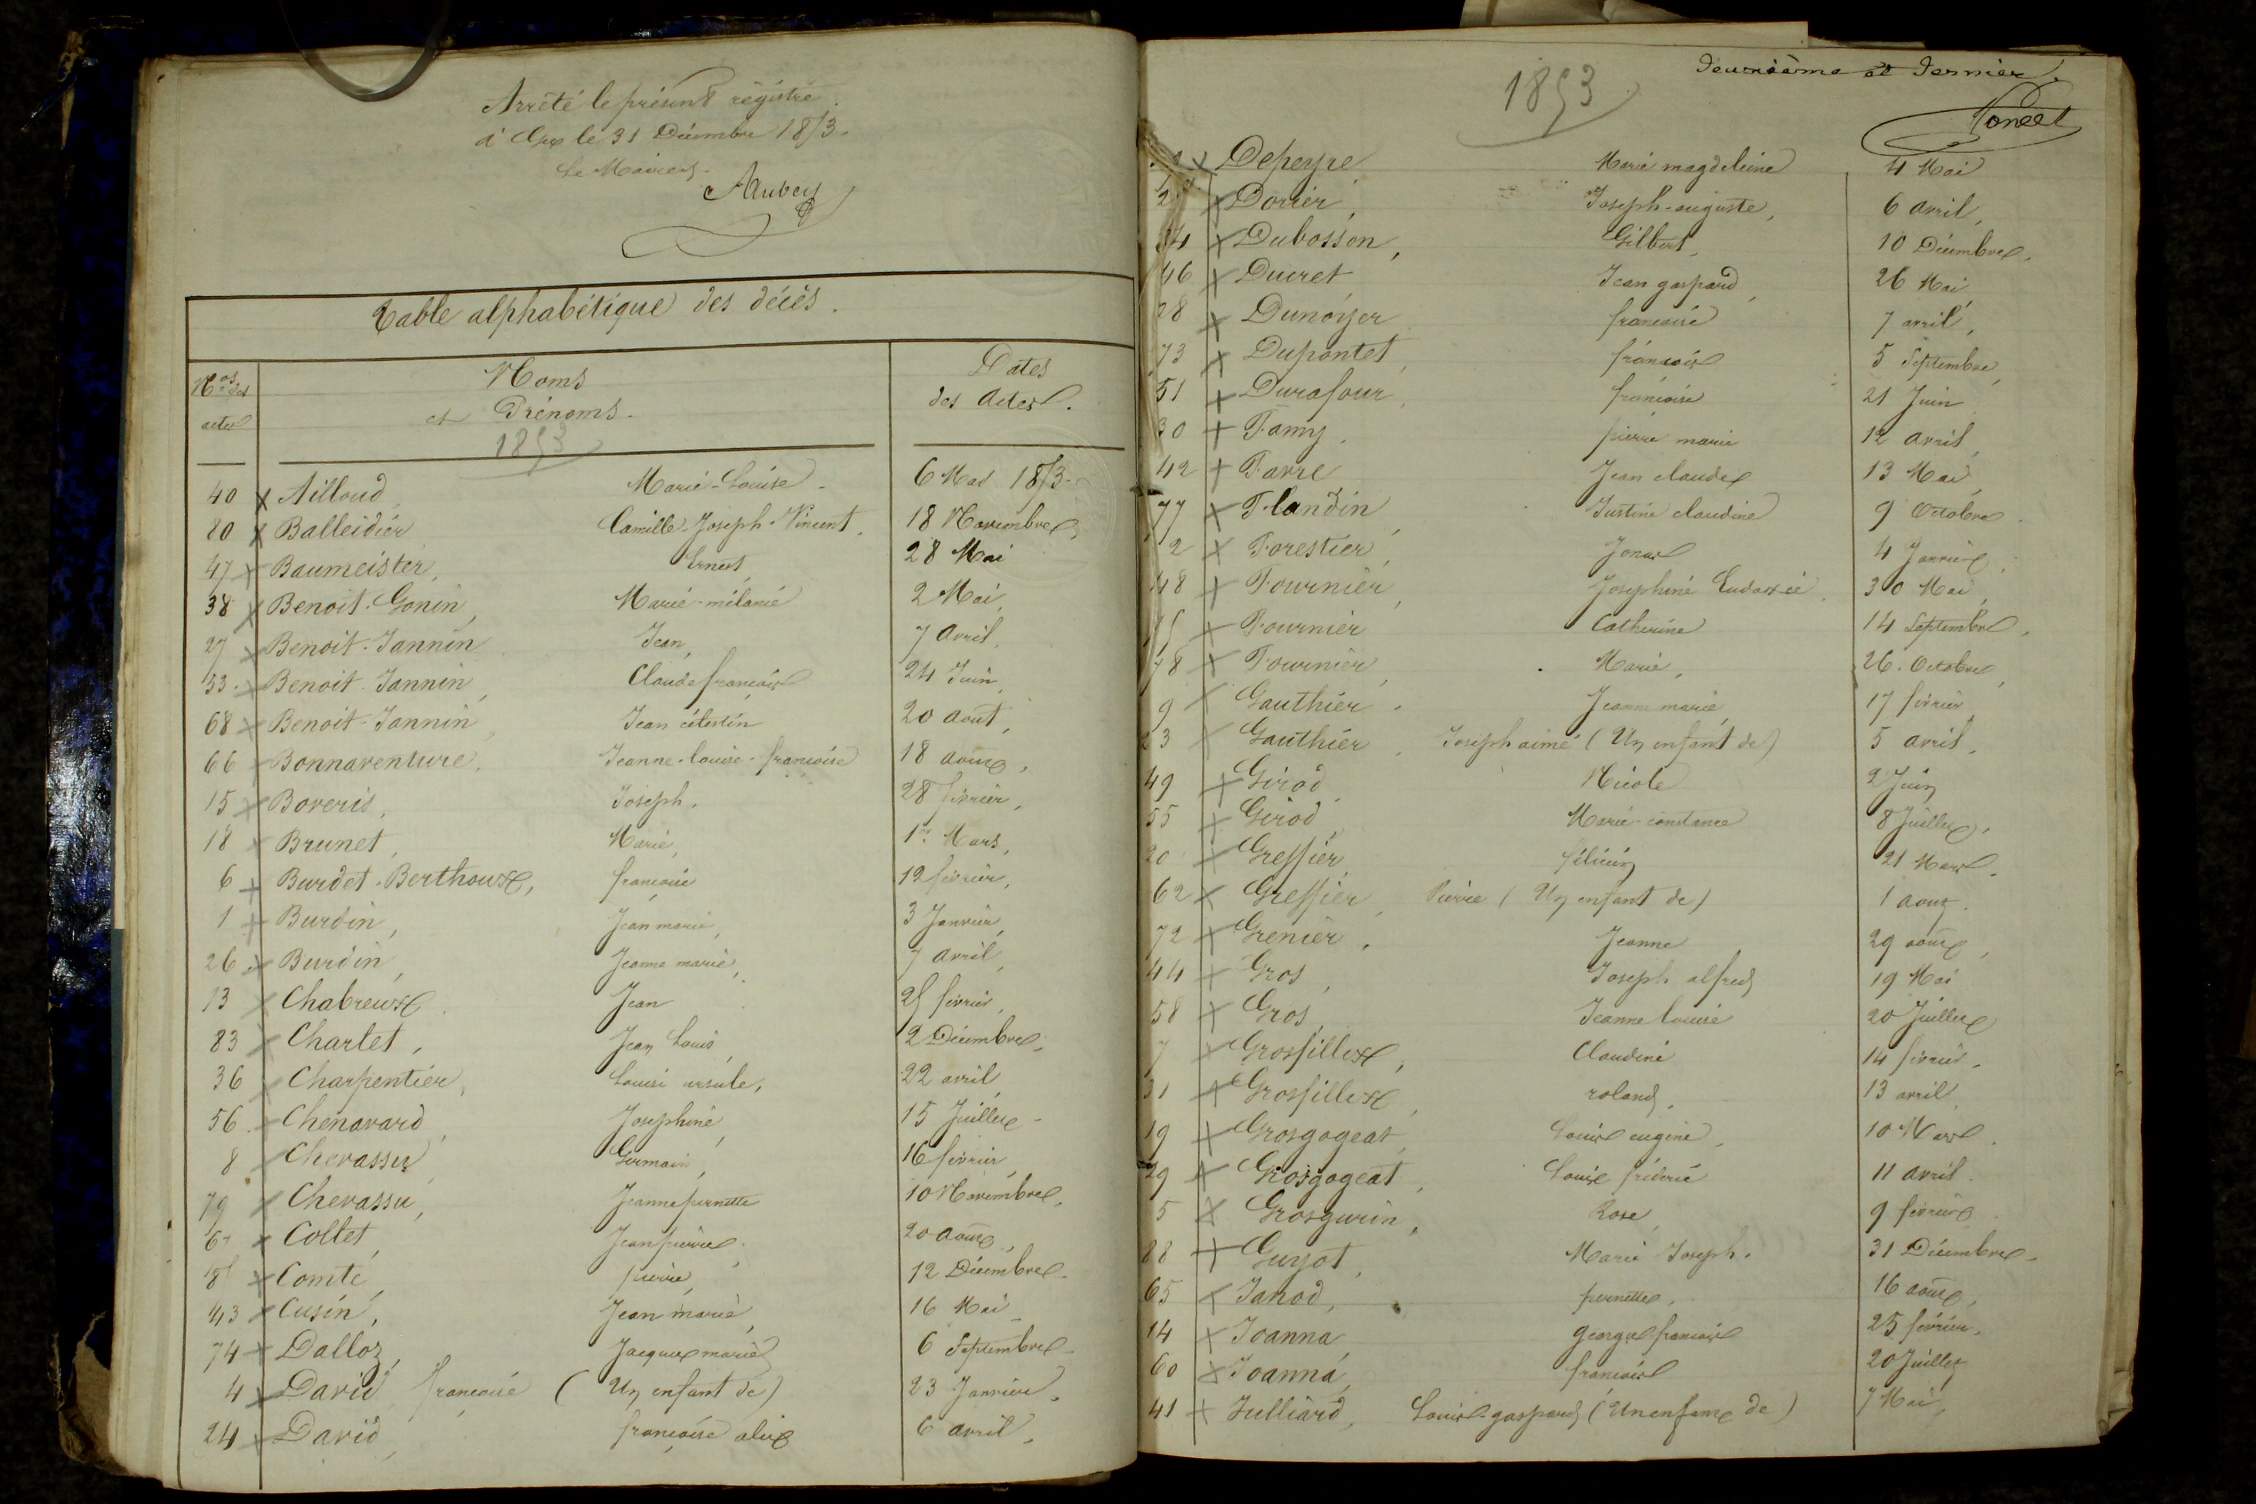 Arrêté le présent régistre
à Gex le 31 Décembre 1853.
Le Maire
Aubey
Table alphabétique des décès.
Nos des actes
Noms et Prénoms.
Dates des Actes.
1853
40 Ailloud, Marie-Louise 6 Mai 1853.
80 Balleidier Camille-Joseph-Vincent, 18 Novembre,
47 Baumeister, Ernest, 28 Mai
38 Benoit-Gonin, Marie-mélanie 2 Mai,
27 Benoit-Jannin Jean, 7 Avril,
53 Benoit-Jannin, Claude françois 24 Juin,
68 Benoit-Jannin, Jean célestin 20 août,
66 Bonnaventure, Jeanne-louise-françoise 18 août,
15 Boveris, Joseph, 28 février,
18 Brunet, Marie, 1er Mars,
6 Burdet-Berthoux, françoise 12 février,
1 Burdin, Jean marie, 3 Janvier,
26 Burdin, Jeanne marie, 7 avril,
13 Chabreux Jean 25 février,
83 Charlet, Jean Louis, 2 Décembre,
36 Charpentier, Louise ursule, 22 avril,
56 Chenavard, Josephine, 15 Juillet
8 Chevassu, Germain, 16 février,
79 Chevassu, Jeanne pernette 10 Novembre,
67 Collet, Jean pierre 20 août,
85 Comte, pierre, 12 Décembre
43 Cusin, Jean marie, 16 Mai
74 Dalloz, Jacques marie 6 Septembre
4 David, françoise (Un enfant de) 23 Janvier,
24 David, françoise alix 6 avril,
1853
deuxième et dernier.
Poncet
Depeyre Marie magdeleine 4 Mai
Dorrier, Joseph-auguste, 6 avril,
84 Dubosson, Gilbert, 10 Décembre,
46 Ducret Jean gaspard, 26 Mai,
28 Dunoyer françoise 7 avril,
73 Dupontet, françois 5 Septembre,
51 Durafour, françoise 21 Juin
30 Famy, pierre marie 12 avril,
42 Favre Jean claude 13 Mai,
77 Flandin, Justine claudine 9 Octobre
2 Forestier, Jonas 4 Janvier,
48 Fournier, Josephine Eudoxie, 30 Mai,
Fournier Catherine 14 Septembre,
78 Fournier, Marie, 26 Octobre,
9 Gauthier Jeanne marie, 17 février
23 Gauthier, Joseph aimé (Un enfant de) 5 avril,
49 Girod, Nicole 2 Juin
55 Girod, Marie constance 8 Juillet,
20 Greffier, félicien 21 Mars,
62 Greffier, Pierre (Un enfant de) 1 août.
72 Grenier, Jeanne, 29 août,
44 Gros, Joseph alfred 19 Mai
58 Gros, Jeanne louise 20 Juillet
7 Grosfillex, Claudine 14 février,
31 Grosfillex, roland, 13 avril
19 Grosgogeat, Louis eugène, 10 Mars.
29 Grosgogeat, Louise 11 avril.
5 Grosgurin, Rose, 9 février
88 Guyot, Marie Joseph. 31 Décembre
65 Janod, pernette, 16 août,
14 Joanna, George françois 25 février,
60 Joanna, françois 20 Juillet
41 Julliard, Louis-gaspard (Un enfant de) 7 Mai,